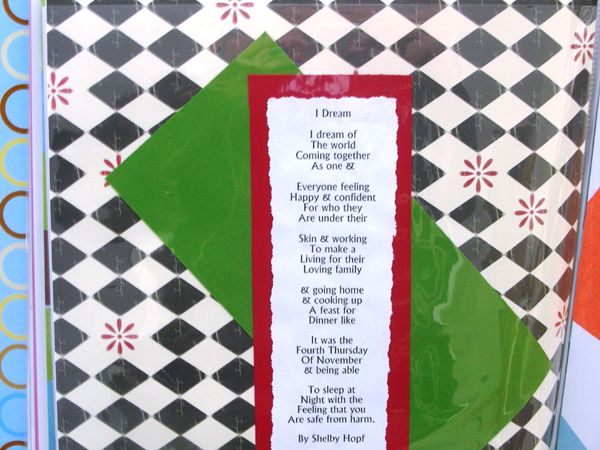 I Dream
I dream of
The world
Coming together
As one &
Everyone feeling
Happy & confident
For who they
Are under their
Skin & working
To make a
Living for their
Loving family
& going home
& cooking up
A feast for
Dinner like
It was the
Fourth Thursday
Of November
& being able
To sleep at
Night with the
Feeling that you
Are safe from harm.
By Shelby Hopf